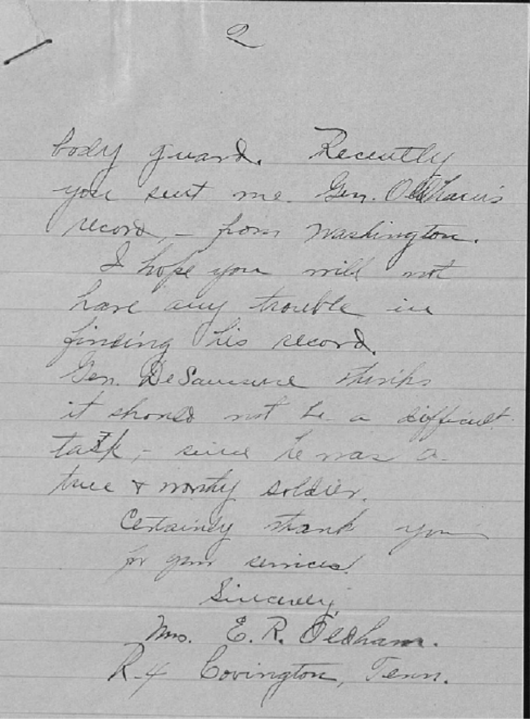 2
body guard. Recently
you sent me Gen. Oldham's
record, - from Washington.
I hope you will not
have any trouble in
finding his record.
Gen. DeSaussure thinks
it should not be a difficult
task, - since he was a
true & worthy soldier.
Certainly thank you
for your services.
Sincerely,
Mrs. E. R. Oldham.
R-4 Covington, Tenn.